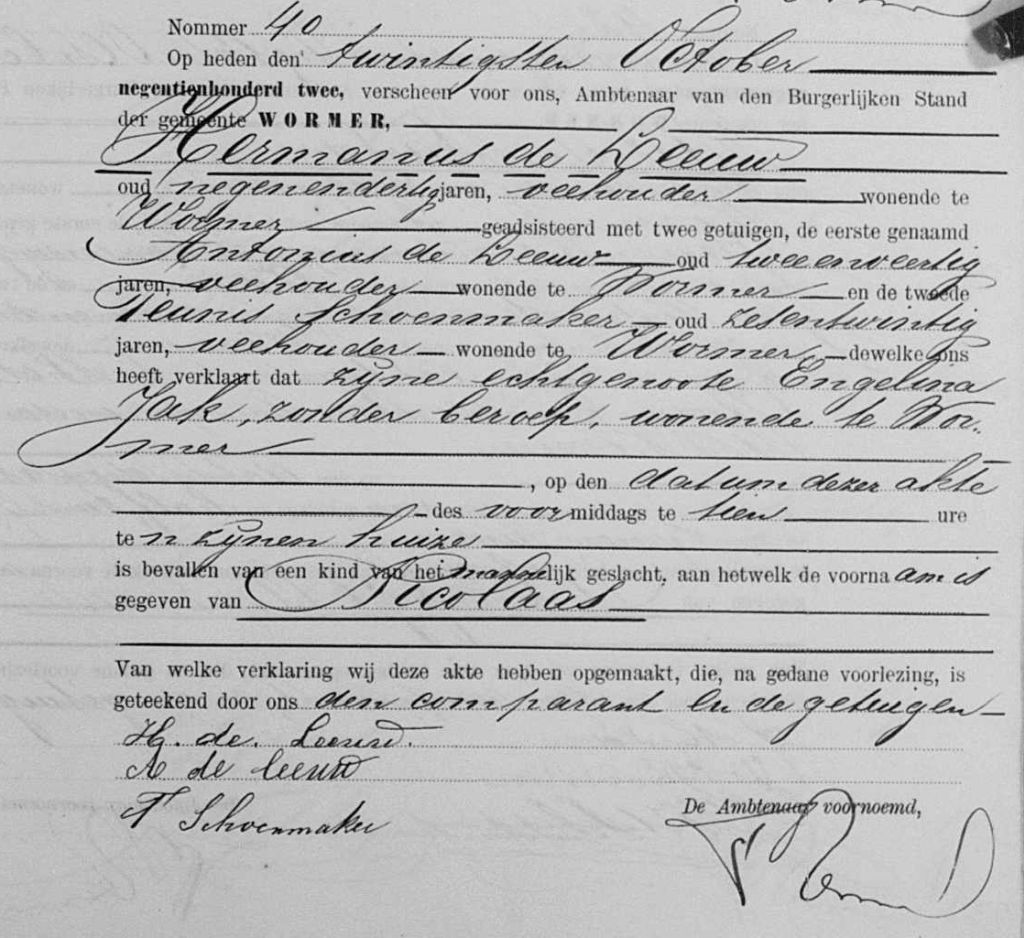 Nommer 40
Op heden den twintigsten October
negentienhonderd twee, verscheen voor ons, Ambtenaar van den Burgerlijken Stand
der gemeente WORMER,
Hermanus de Leeuw
oud negenendertig jaren, veehouder wonende te
Wormer geadsisteerd met twee getuigen, de eerste genaamd
Antonius de Leeuw oud tweeenveertig
jaren, veehouder wonende te Wormer en de tweede
Teunis Schoenmaker oud zesentwintig
jaren, veehouder wonende te Wormer, dewelke ons
heeft verklaart dat zijne echtgenoote Engelina
Jak, zonder beroep, wonende te Wor-
mer
, op den datum dezer akte
des voormiddags te tien ure
te n zijnen huize
is bevallen van een kind van het mannelijk geslacht, aan hetwelk de voornaam is
gegeven van Nicolaas
Van welke verklaring wij deze akte hebben opgemaakt, die, na gedane voorlezing, is
geteekend door ons den comparant en de getuigen
H. de. Leeuw.
A de leeuw
T Schoenmaker
De Ambtenaar voornoemd,